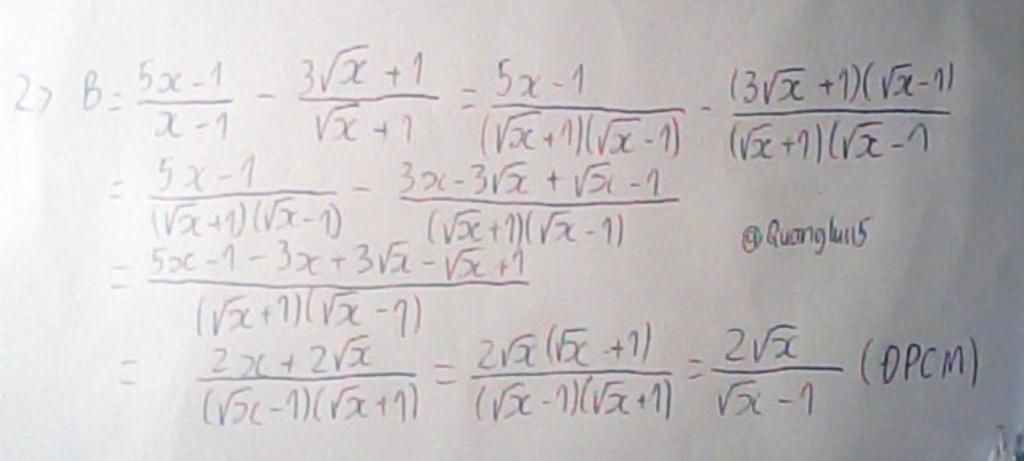 2) B = \frac{5x-1}{x-1} - \frac{3\sqrt{x}+1}{\sqrt{x}+1} = \frac{5x-1}{(\sqrt{x}+1)(\sqrt{x}-1)} - \frac{(3\sqrt{x}+1)(\sqrt{x}-1)}{(\sqrt{x}+1)(\sqrt{x}-1}
= \frac{5x-1}{(\sqrt{x}+1)(\sqrt{x}-1)} - \frac{3x-3\sqrt{x}+\sqrt{x}-1}{(\sqrt{x}+1)(\sqrt{x}-1)}
= \frac{5x-1-3x+3\sqrt{x}-\sqrt{x}+1}{(\sqrt{x}+1)(\sqrt{x}-1)}
= \frac{2x+2\sqrt{x}}{(\sqrt{x}-1)(\sqrt{x}+1)} = \frac{2\sqrt{x}(\sqrt{x}+1)}{(\sqrt{x}-1)(\sqrt{x}+1)} = \frac{2\sqrt{x}}{\sqrt{x}-1} (ĐPCM)